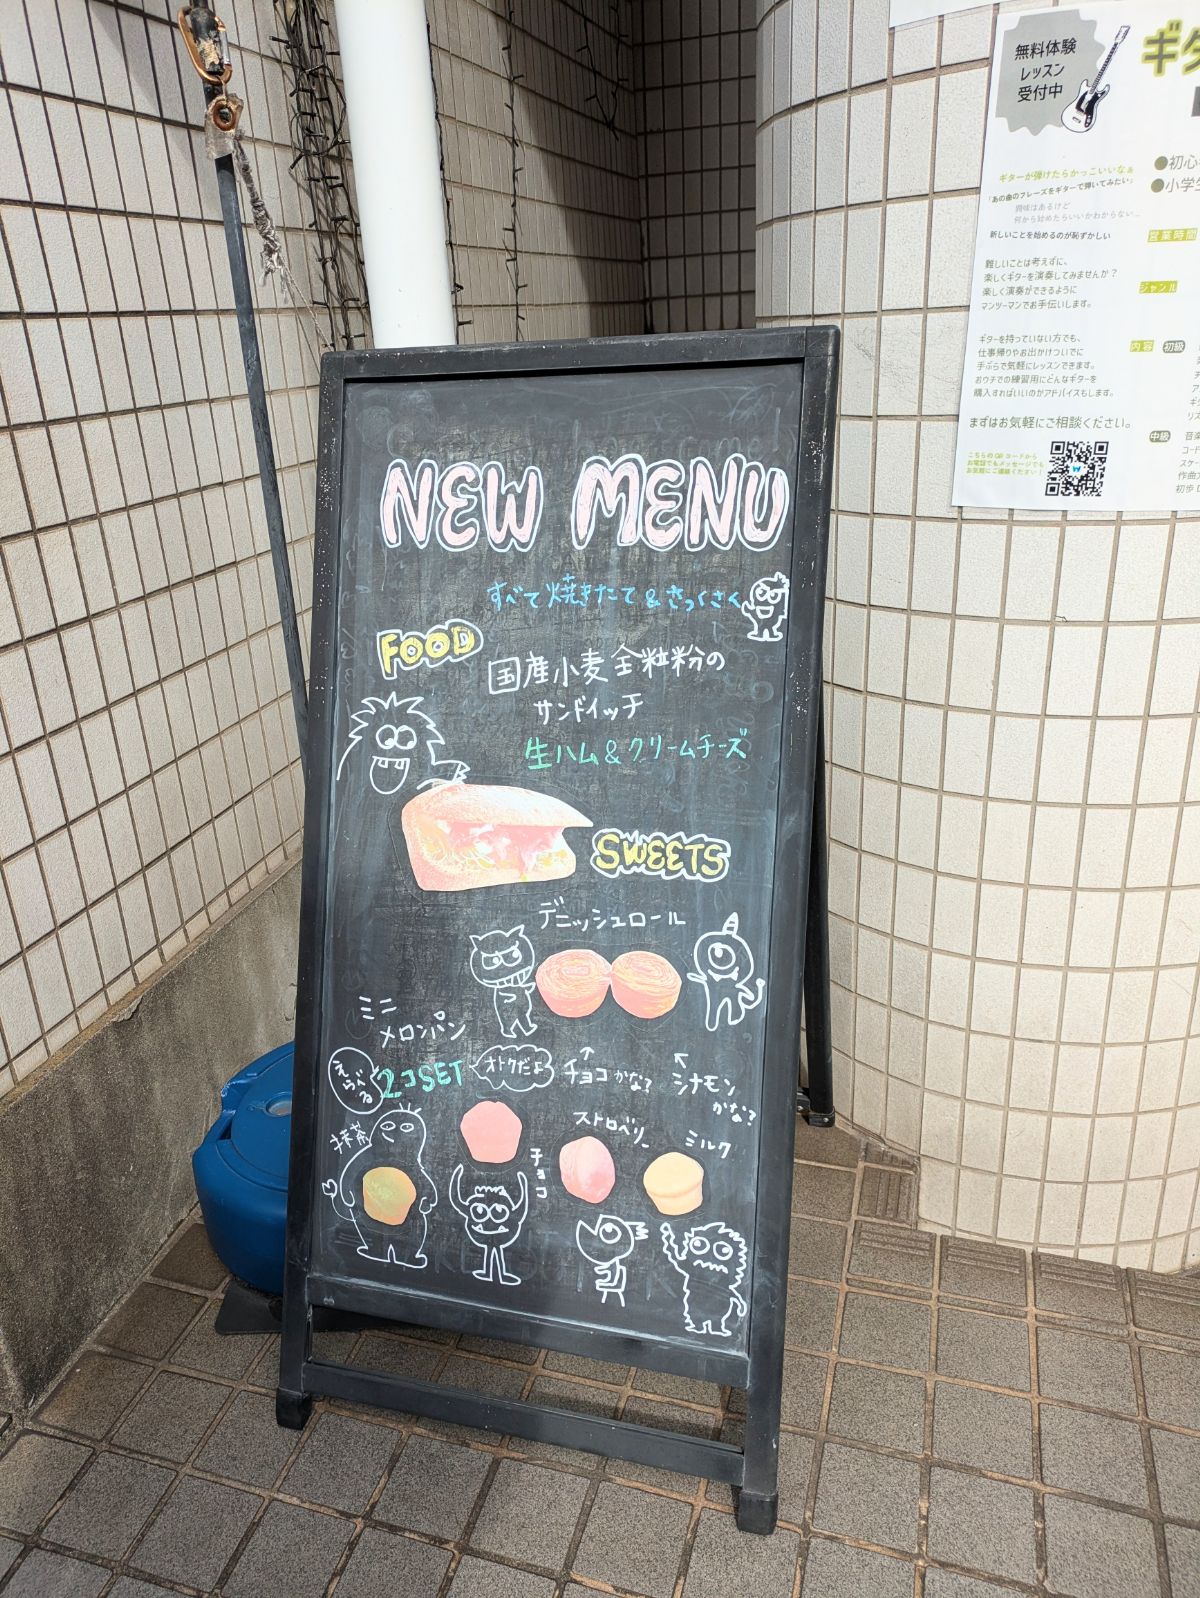 NEW MENU
すべて焼きたて&さっくさく
FOOD
国産小麦全粒粉の
サンドイッチ
生ハム&クリームチーズ
SWEETS
デニッシュロール
ミニ
メロンパン
2コSET
オトクだよ
えらべる
↑
チョコかな?
↑
シナモン
かな?
抹茶
チョコ
ストロベリー
ミルク
無料体験
レッスン
受付中
ギターが弾けたらかっこいいなぁ
「あの曲のフレーズをギターで弾いてみたい」
興味はあるけど
何から始めたらいいかわからない...
新しいことを始めるのが恥ずかしい
難しいことは考えずに、
楽しくギターを演奏してみませんか?
楽しく演奏ができるように
マンツーマンでお手伝いします。
ギターを持っていない方でも、
仕事帰りやお出かけついでに
手ぶらで気軽にレッスンできます。
おウチでの練習用にどんなギターを
購入すればいいのかアドバイスもします。
まずはお気軽にご相談ください。
こちらのQRコードから
お電話でもメッセージでも
お気軽にご連絡ください!
●初心
●小学生
営業時間
ジャンル
内容 初級
中級 音楽
コード
スケー
作曲
初歩